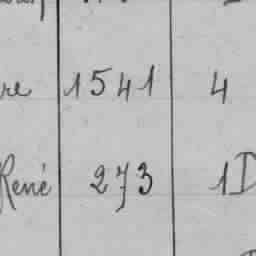 re 1541 4
René 273 1D